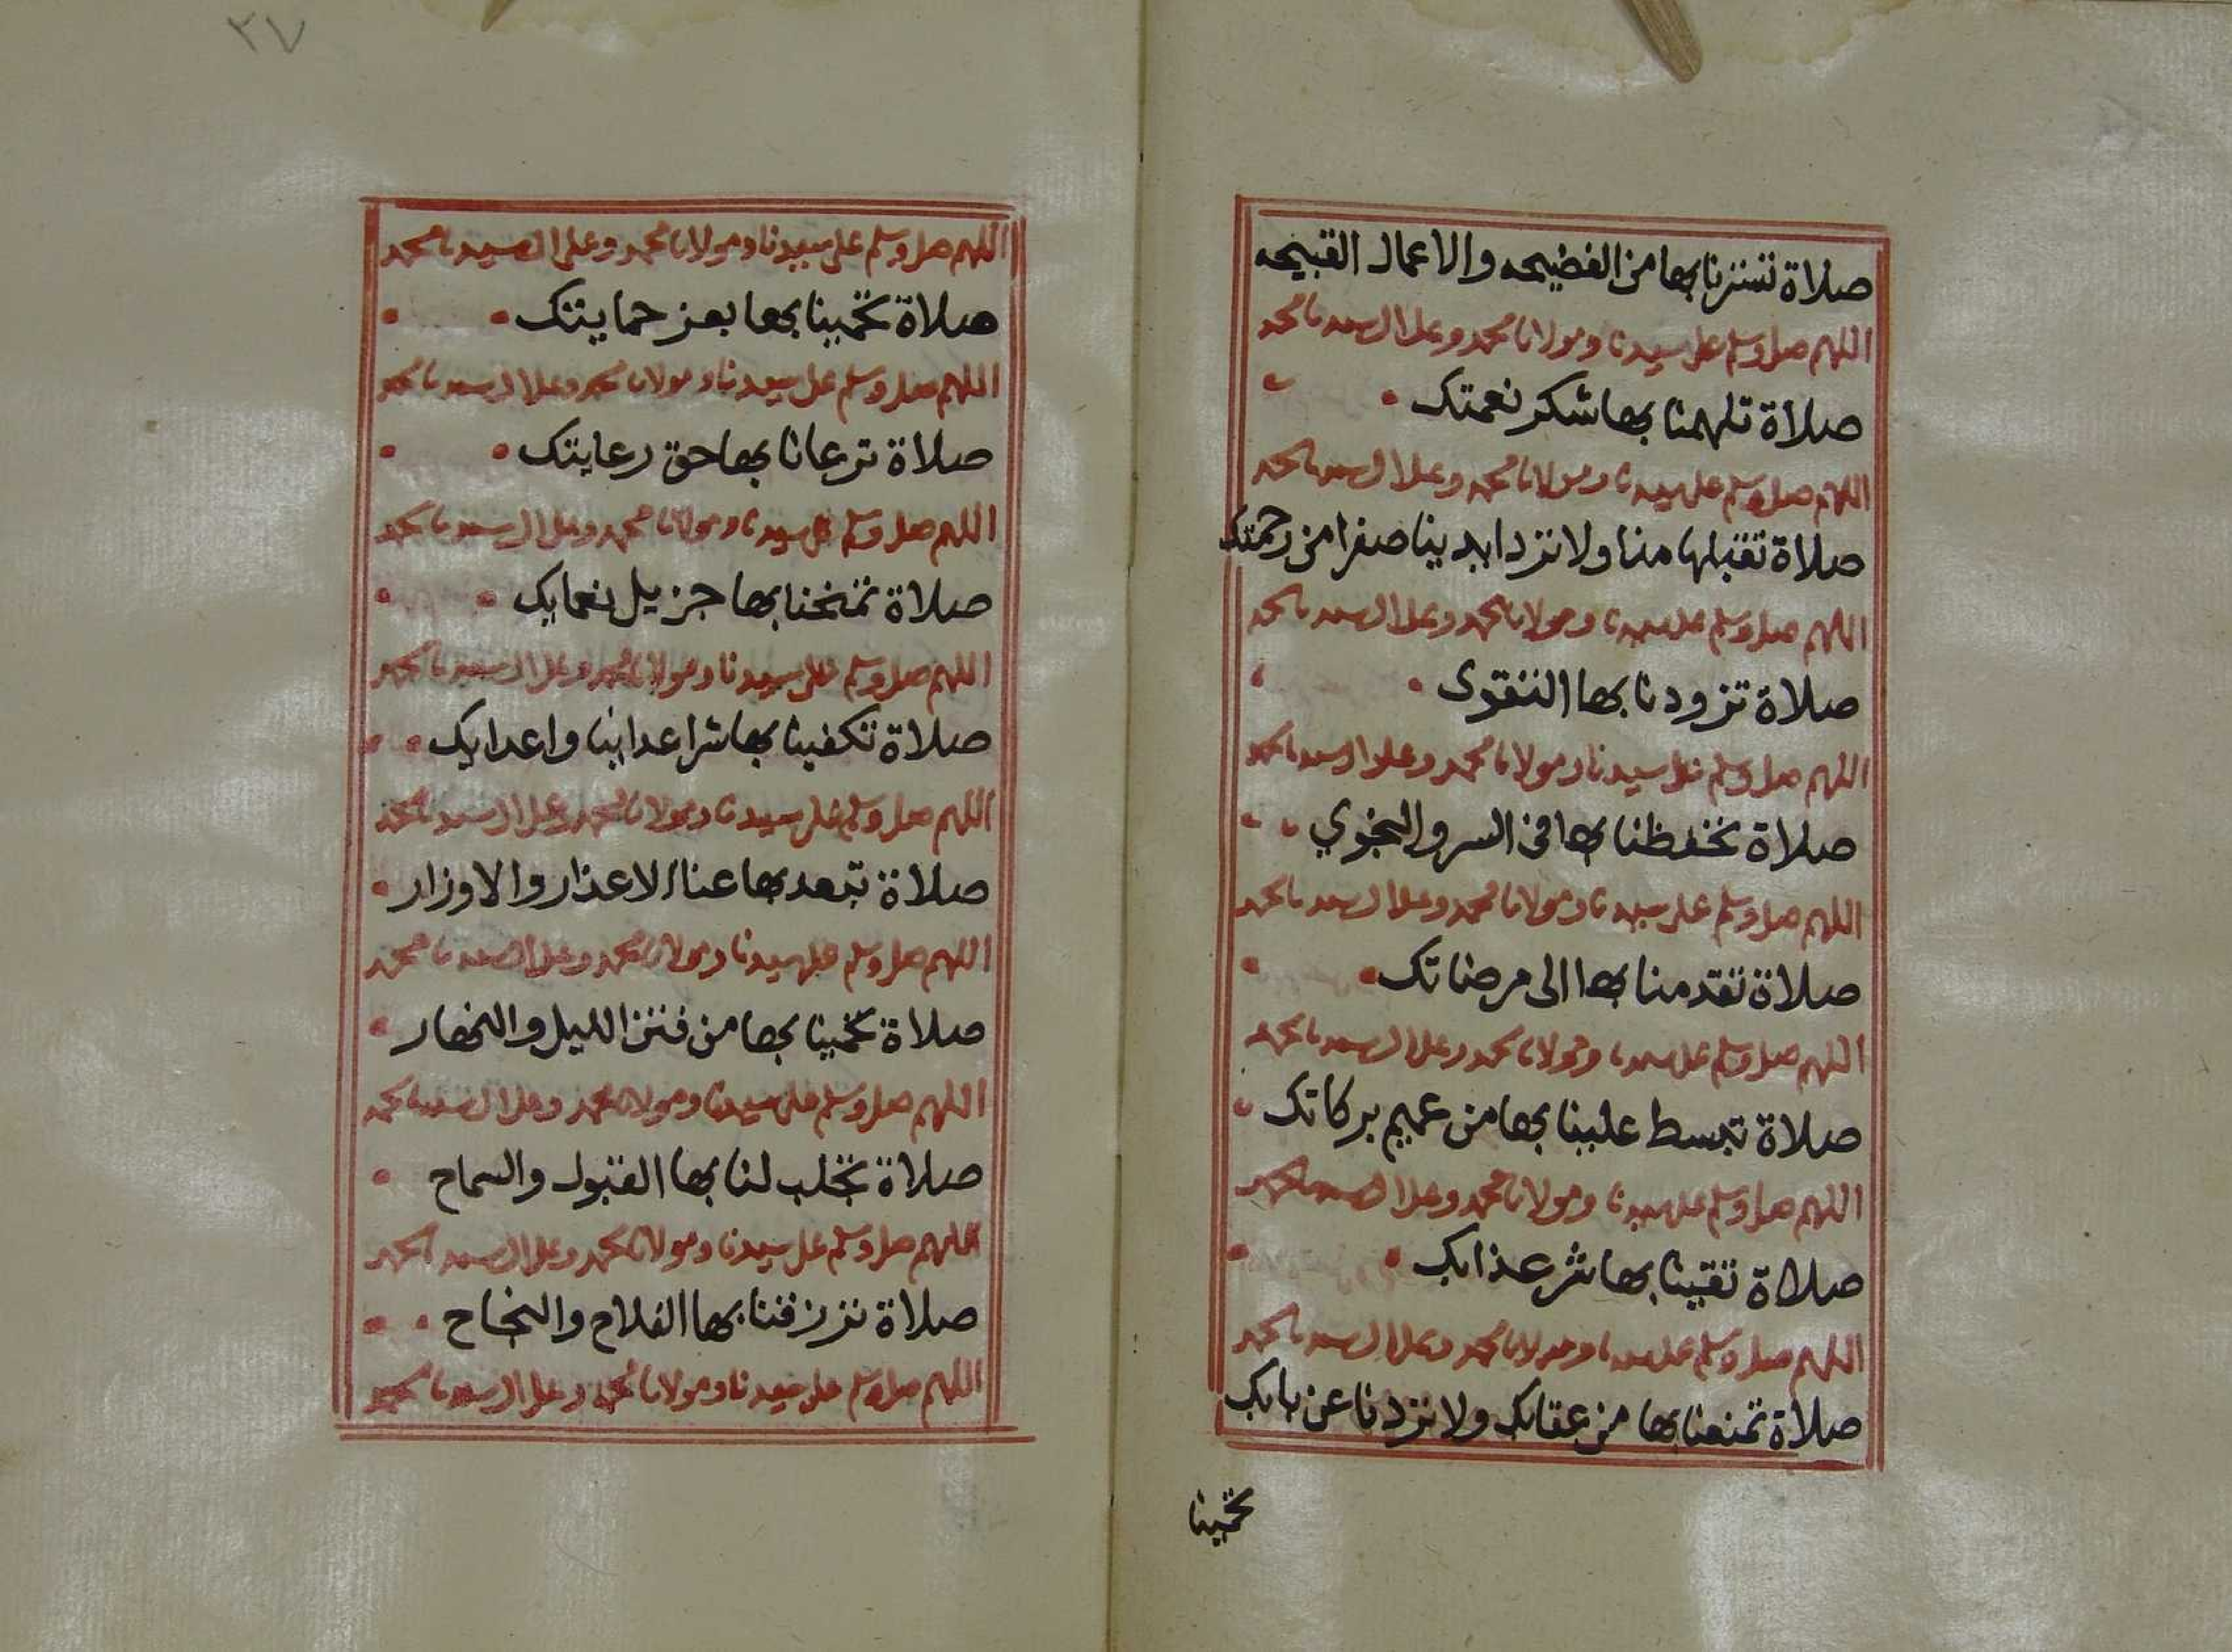 صلاة تسترنا بها من الفضيحه والاعمال القبيحه
اللهم صل وسلم على سيدنا ومولانا محمد وعلى ال سيدنا محمد
صلاة تلهمنا بها شكر نعمتك
اللهم صل وسلم على سيدنا ومولانا محمد وعلى ال سيدنا محمد
صلاة تقبلها منا ولا ترد ايدينا صفرا من رحمتك
اللهم صل وسلم على سيدنا ومولانا محمد وعلى ال سيدنا محمد
صلاة تزودنا بها التقوى
اللهم صل وسلم على سيدنا ومولانا محمد وعلى ال سيدنا محمد
صلاة تحفظنا بها في السر والنجوي
اللهم صل وسلم على سيدنا ومولانا محمد وعلى ال سيدنا محمد
صلاة تقدمنا بها الى مرضاتك
اللهم صل وسلم على سيدنا ومولانا محمد وعلى ال سيدنا محمد
صلاة تبسط علينا بها من عميم بركاتك
اللهم صل وسلم على سيدنا ومولانا محمد وعلى ال سيدنا محمد
صلاة تقينا بها شر عذابك
اللهم صل وسلم على سيدنا ومولانا محمد وعلى ال سيدنا محمد
صلاة تمنعنا بها من عقابك ولا تردنا عن بابك
تحمينا
٢٧
اللهم صل وسلم على سيدنا ومولانا محمد وعلى ال سيدنا محمد
صلاة تحمينا بها بعز حمايتك
اللهم صل وسلم على سيدنا ومولانا محمد وعلى ال سيدنا محمد
صلاة ترعانا بها حق رعايتك
اللهم صل وسلم على سيدنا ومولانا محمد وعلى ال سيدنا محمد
صلاة تمنحنا بها جزيل نعمايك
اللهم صل وسلم على سيدنا ومولانا محمد وعلى ال سيدنا محمد
صلاة تكفينا بها شر اعداينا واعدايك
اللهم صل وسلم على سيدنا ومولانا محمد وعلى ال سيدنا محمد
صلاة تبعد بها عنا الاعذار والاوزار
اللهم صل وسلم على سيدنا ومولانا محمد وعلى ال سيدنا محمد
صلاة تحمينا بها من فتن الليل والنهار
اللهم صل وسلم على سيدنا ومولانا محمد وعلى ال سيدنا محمد
صلاة تجلب لنا بها القبول والسماح
اللهم صل وسلم على سيدنا ومولانا محمد وعلى ال سيدنا محمد
صلاة ترزقنا بها الفلاح والنجاح
اللهم صل وسلم على سيدنا ومولانا محمد وعلى ال سيدنا محمد